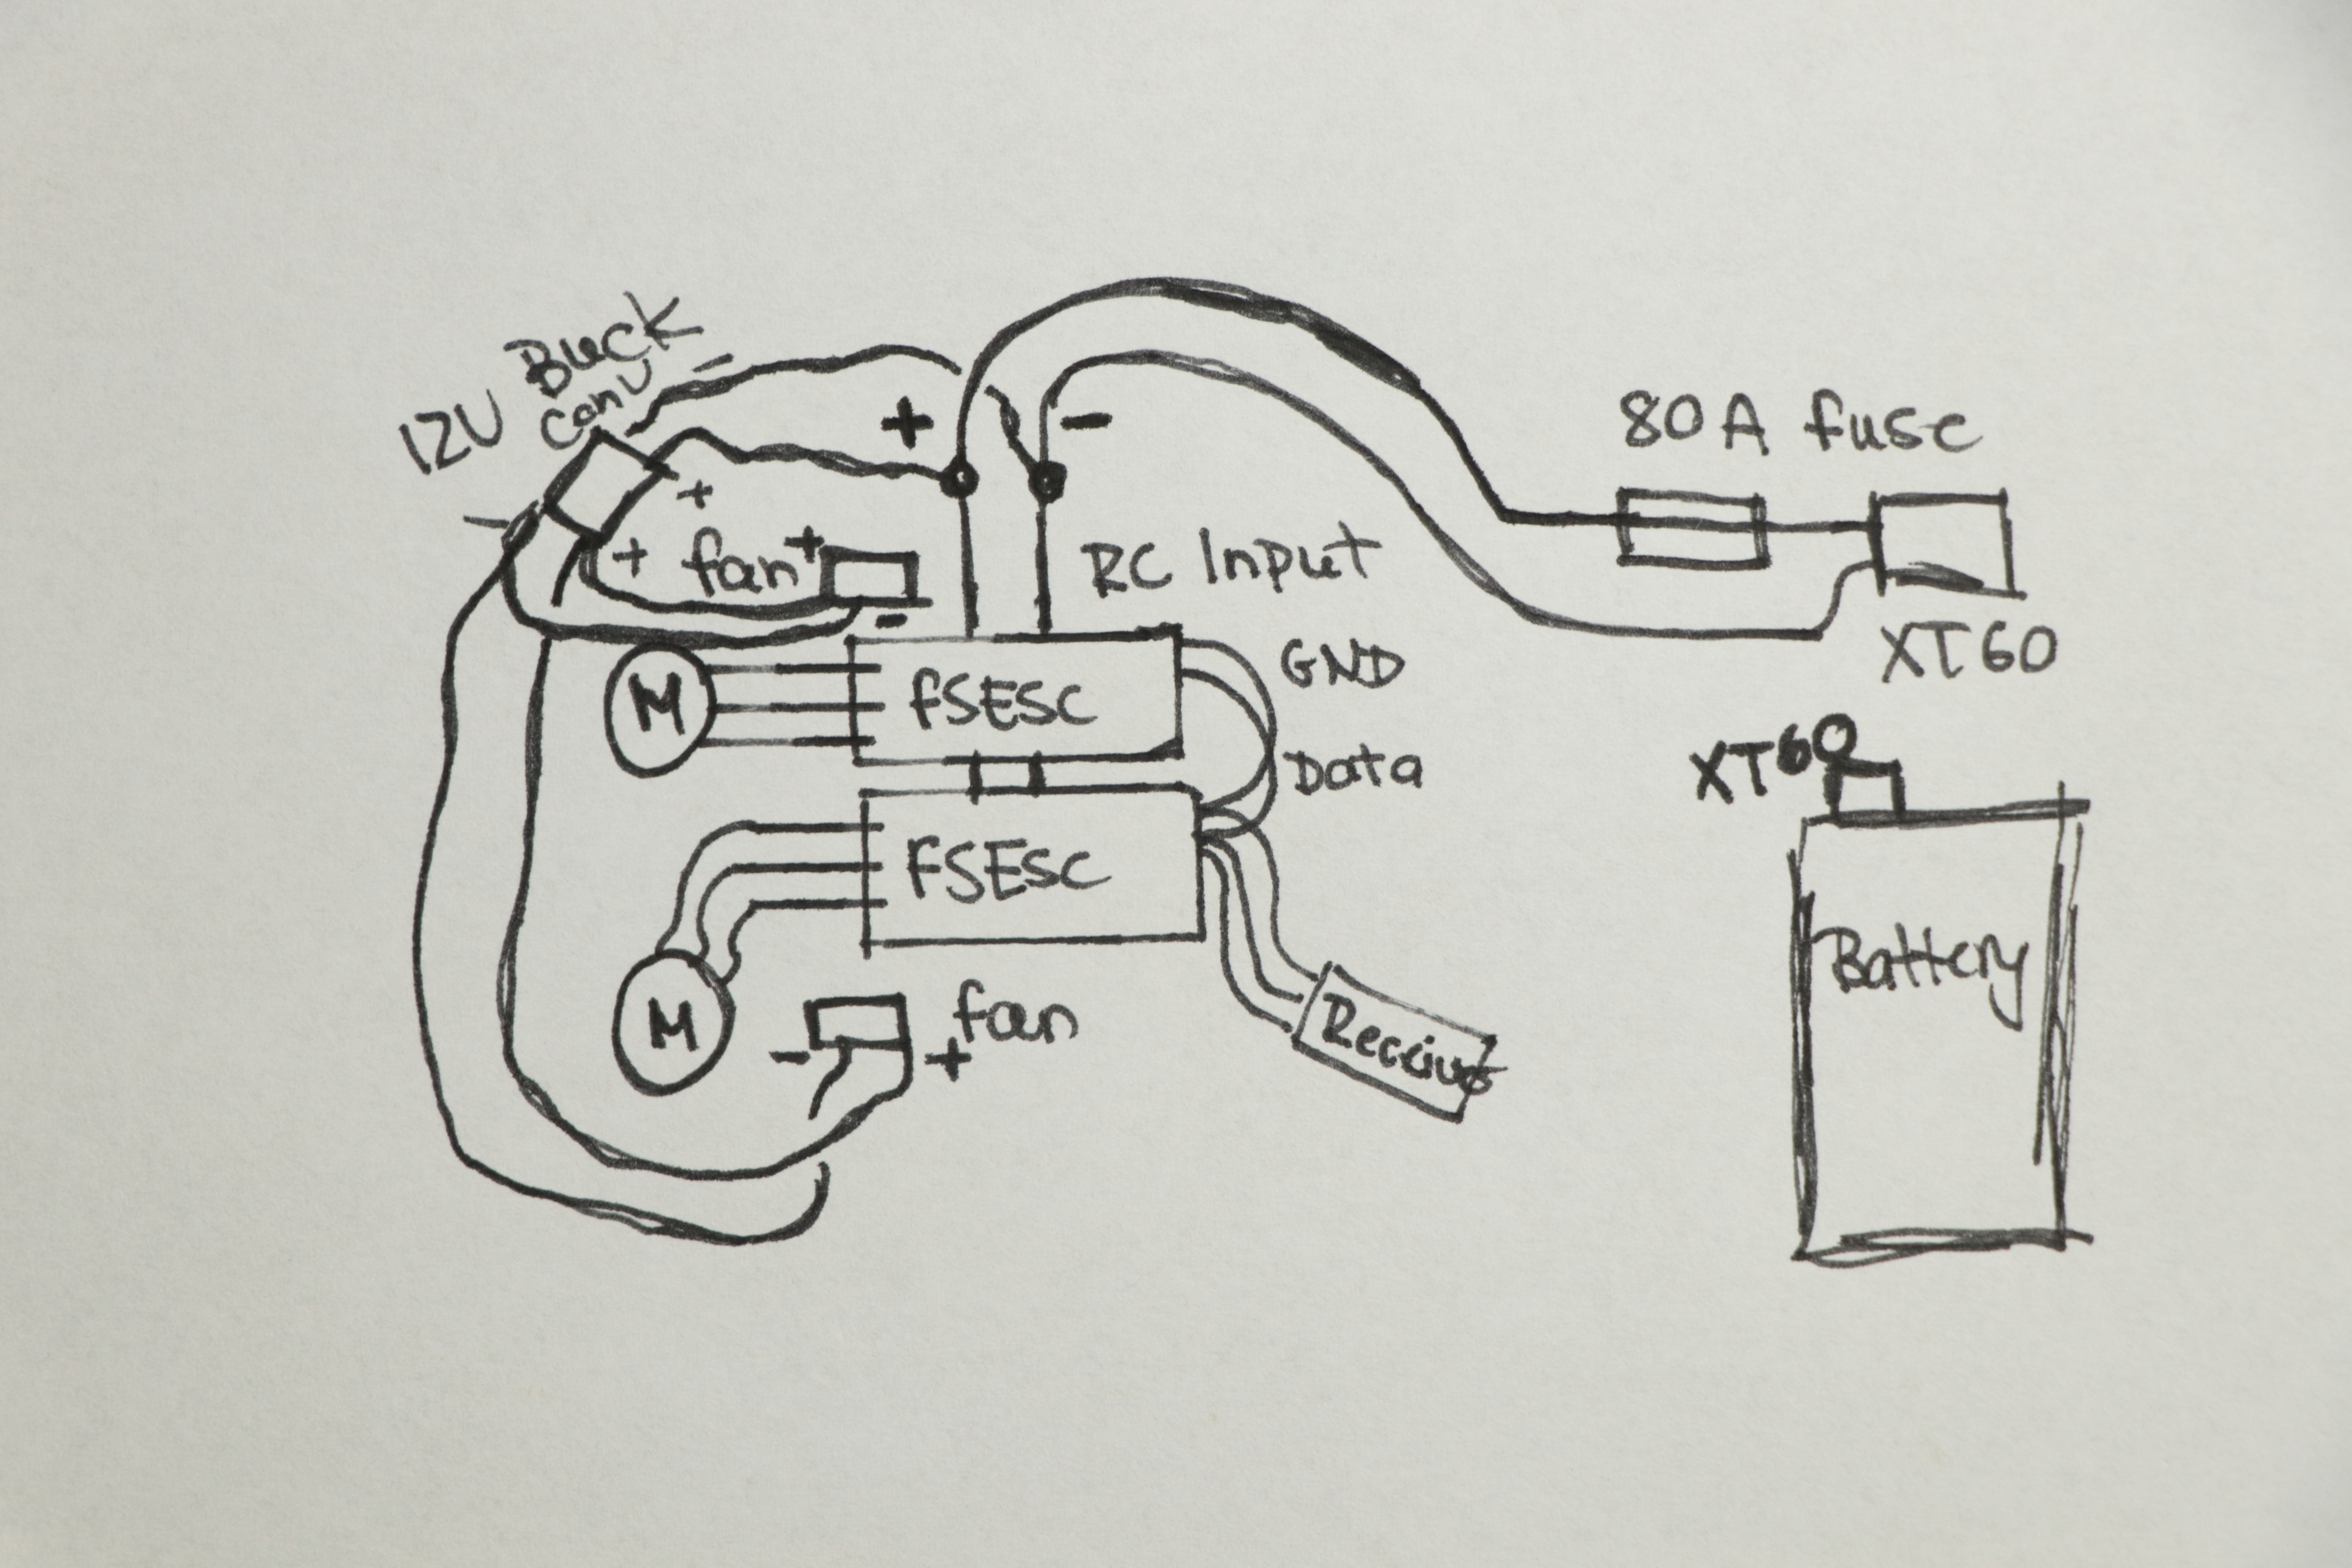 12V Buck
Conv
-
+
-
80A fuse
+
-
+
fan +
-
RC Input
XT60
GND
M
FSESC
Data
XT60
FSESC
Battery
M
fan
-
+
Receiver